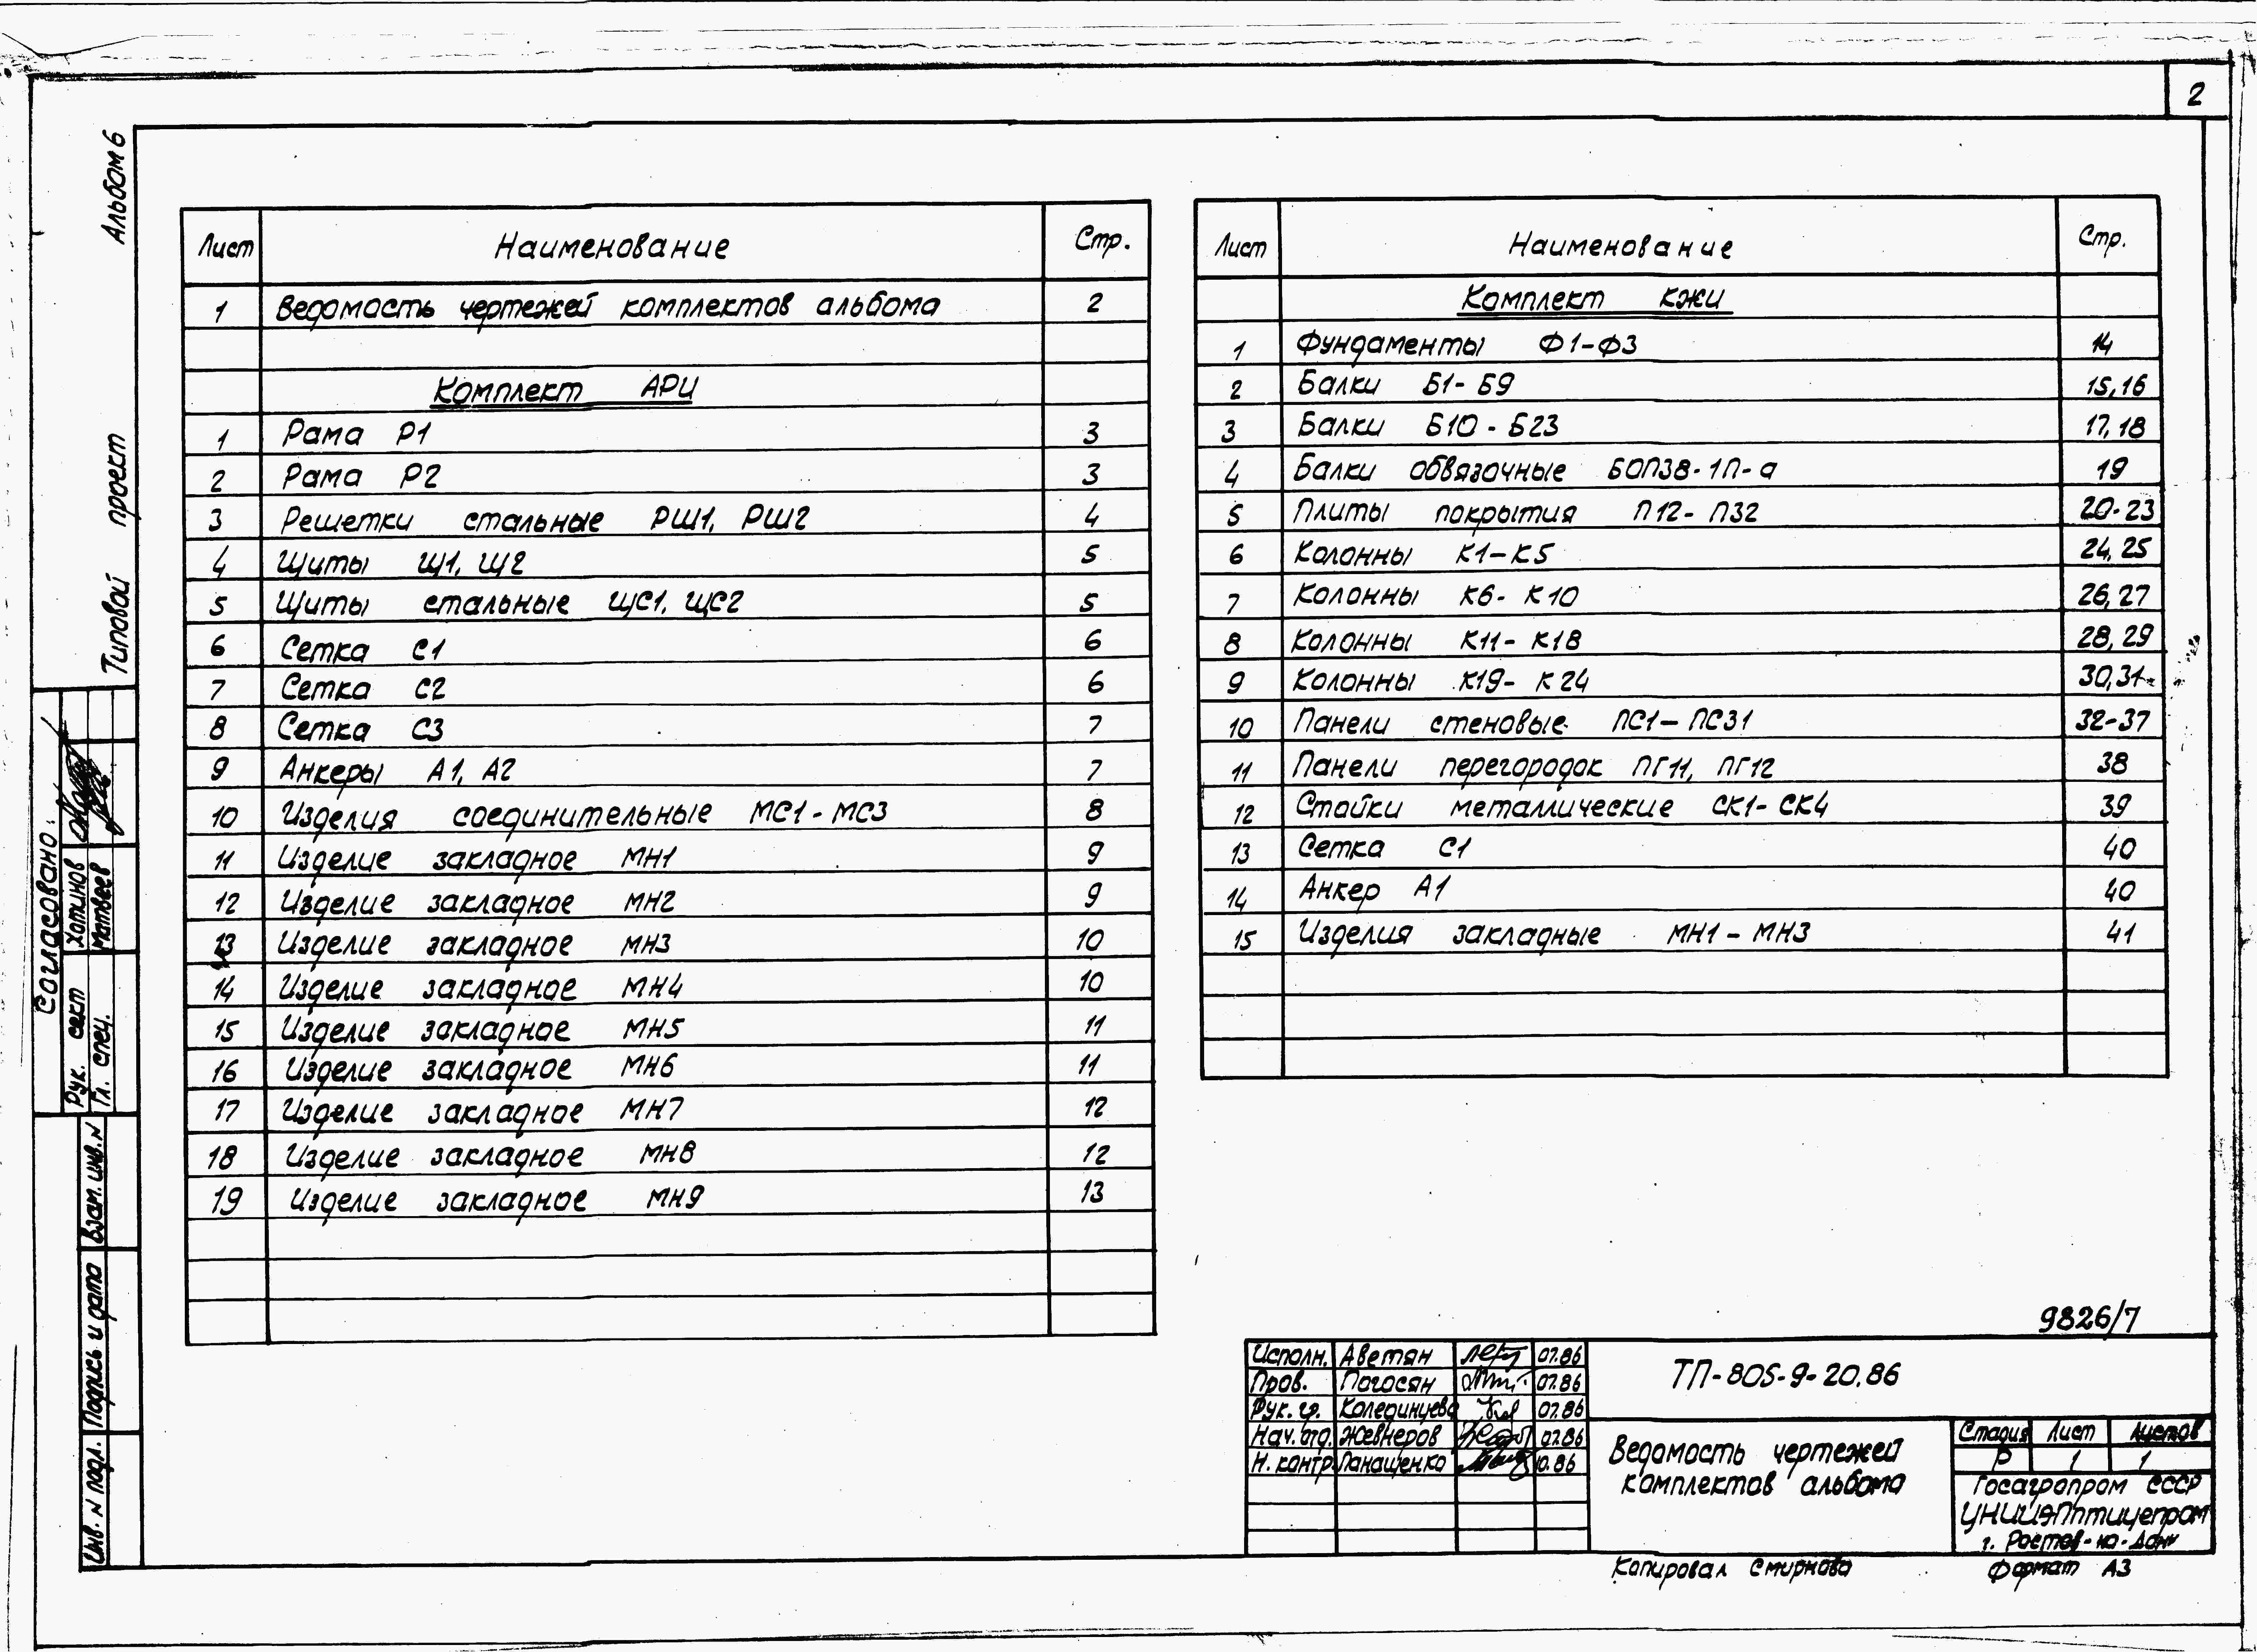 2
Альбом 6
Типовой проект
Лист Наименование Стр.
1 Ведомость чертежей комплектов альбома 2
Комплект АРИ
1 Рама Р1 3
2 Рама Р2 3
3 Решетки стальные РШ1, РШ2 4
4 Щиты Щ1, Щ2 5
5 Щиты стальные ЩС1, ЩС2 5
6 Сетка С1 6
7 Сетка С2 6
8 Сетка С3 7
9 Анкеры А1, А2 7
10 Изделия соединительные МС1-МС3 8
11 Изделие закладное МН1 9
12 Изделие закладное МН2 9
13 Изделие закладное МН3 10
14 Изделие закладное МН4 10
15 Изделие закладное МН5 11
16 Изделие закладное МН6 11
17 Изделие закладное МН7 12
18 Изделие закладное МН8 12
19 Изделие закладное МН9 13
Лист Наименование Стр.
Комплект КЖИ
1 Фундаменты Ф1-Ф3 14
2 Балки Б1-Б9 15,16
3 Балки Б10-Б23 17,18
4 Балки обвязочные БОП38-1П-а 19
5 Плиты покрытия П12-П32 20-23
6 Колонны К1-К5 24,25
7 Колонны К6-К10 26,27
8 Колонны К11-К18 28,29
9 Колонны К19-К24 30,31
10 Панели стеновые ПС1-ПС31 32-37
11 Панели перегородок ПГ11, ПГ12 38
12 Стойки металлические СК1-СК4 39
13 Сетка С1 40
14 Анкер А1 40
15 Изделия закладные МН1-МН3 41
Согласовано:
Рук. сект Хотинов
Гл. спец. Матвеев
Взам. инв. N
Подпись и дата
Инв. N подл.
9826/7
Исполн. Аветян 07.86
Пров. Погосян 07.86
Рук. гр. Колединцева 07.86
Нач. отд. Жевнеров 07.86
Н. контр. Панащенко 10.86
ТП-805-9-20.86
Ведомость чертежей
комплектов альбома
Стадия Лист Листов
Р 1 1
Госагропром СССР
ЦНИИЭПптицепром
г. Ростов-на-Дону
Копировал Смирнова Формат А3